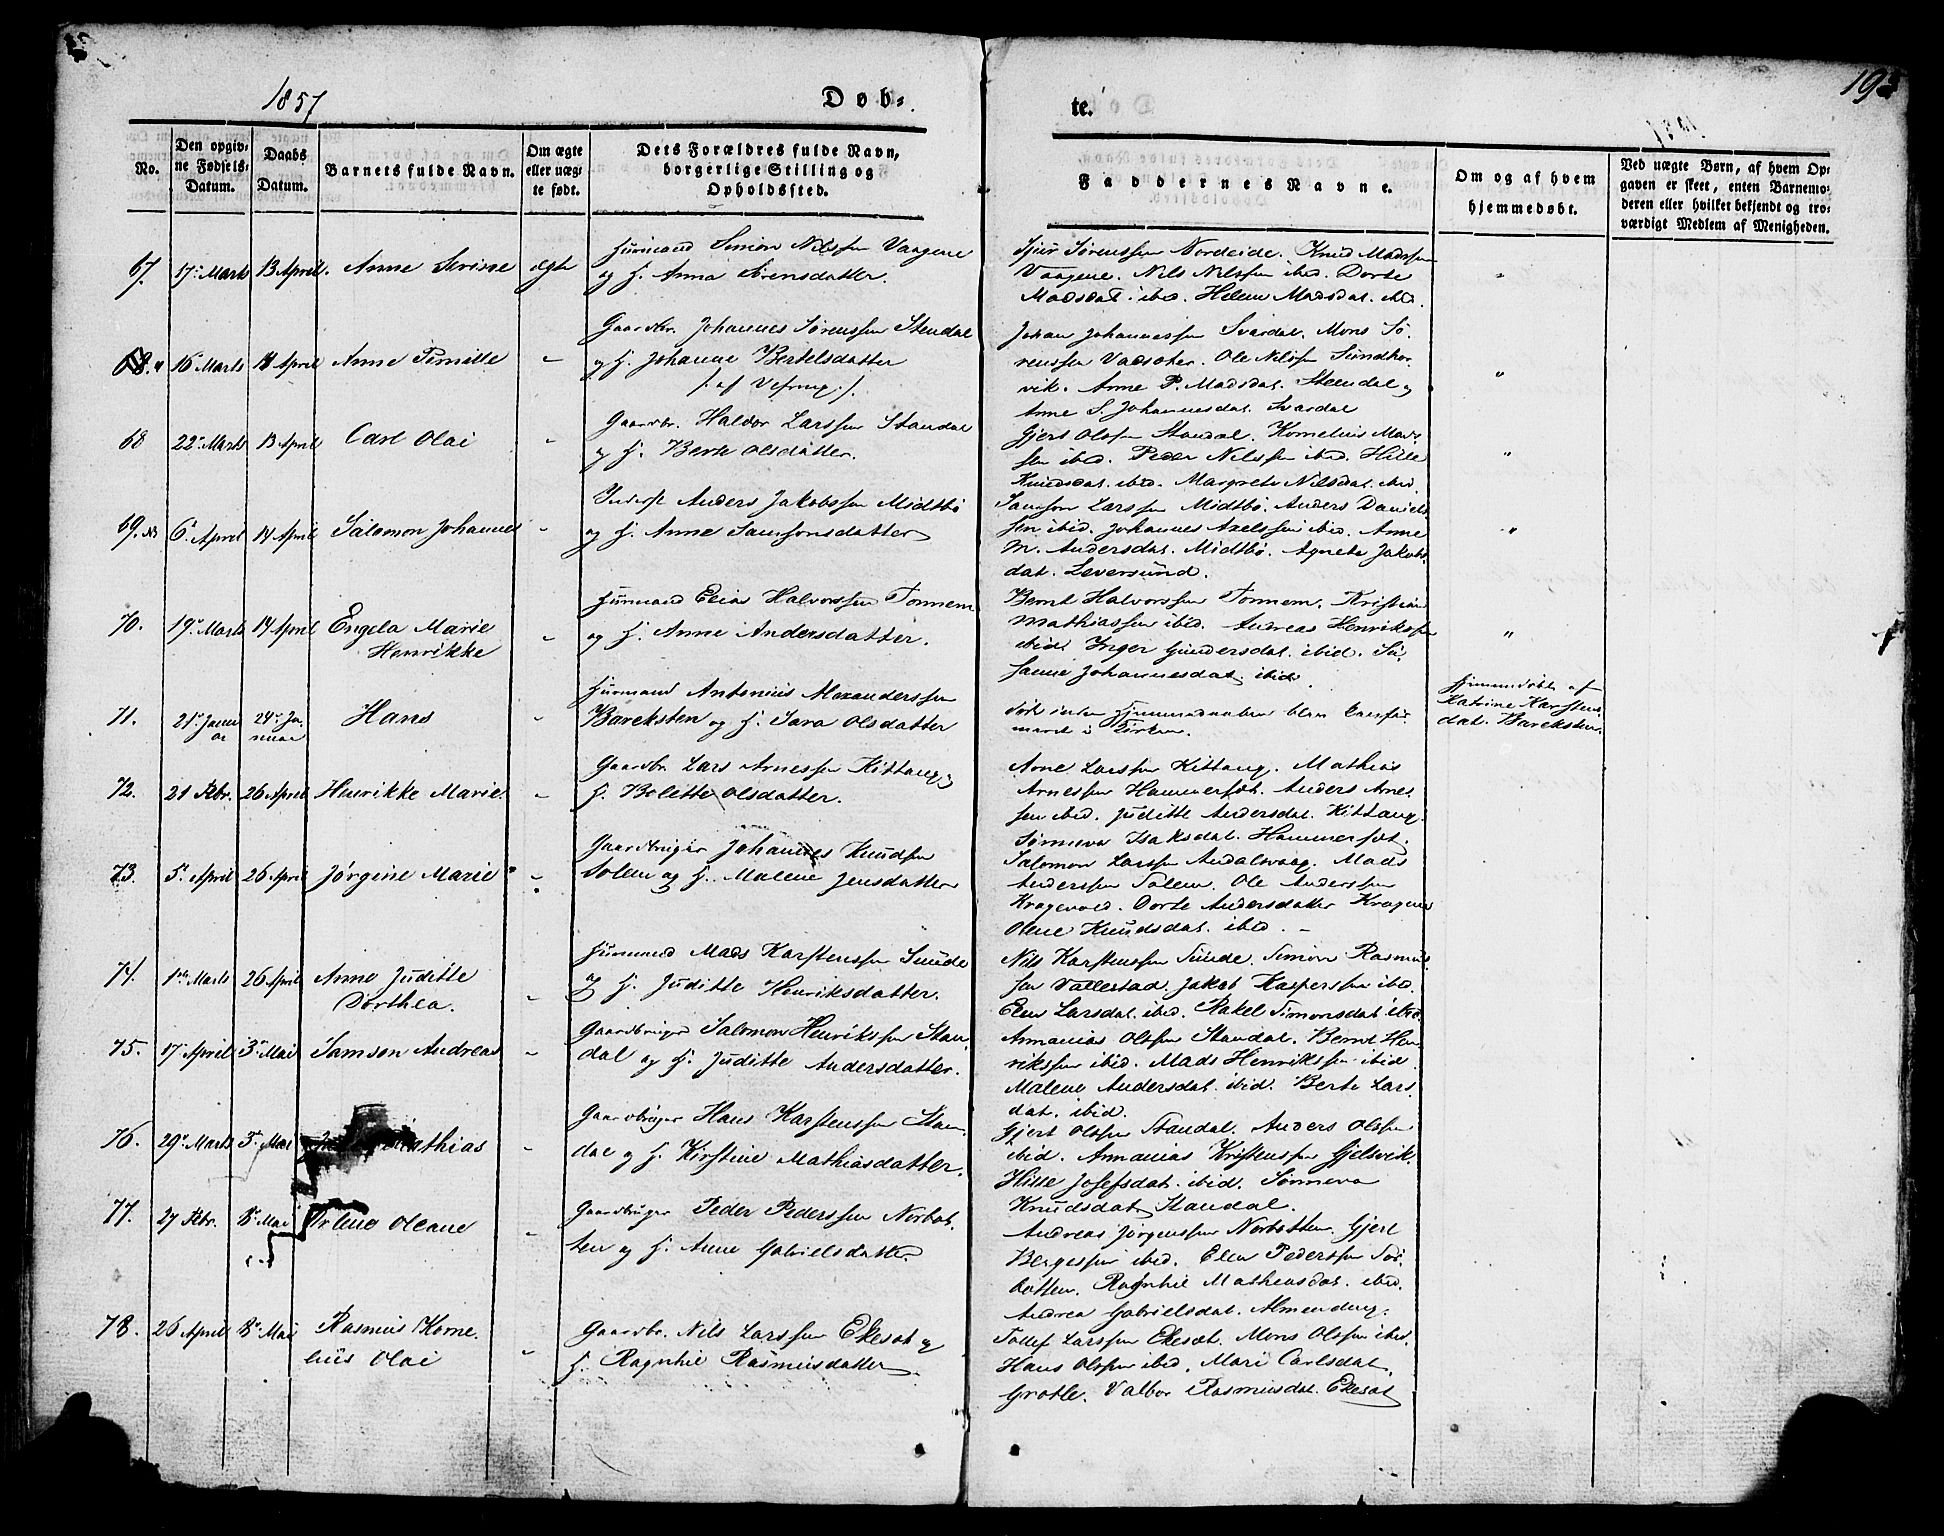 1857
Døb-
te.
193
No.
Den opgiv-
ne Fødsels-
Datum.
Daabs
Datum.
Barnets fulde Navn.
Om ægte
eller uæg-
te født.
Dets Forældres fulde Navn,
borgerlige Stilling og
Opholdssted.
Faddernes Navne.
Om og af hvem
hjemmedøbt.
Ved uægte Børn, af hvem Op-
gaven er skeet, enten Barnemo-
deren eller hvilket bekjendt og tro-
værdigt Medlem af Menigheden.
67. 17. Marts 13 April. Anne Serine ægte
Huusmand Simon Nilssen Vaagene
og H. Anna Sørensdatter.
Sjur Sørenssen Nordeide. Knud Madssen
Vaagene. Nils Nilssen ibid. Dorte
Madsdat. ibid. Helene Madsdat. ibid.
68. 16 Marts 18 April Anne Pernille
Gaardbr. Johannes Sørenssen Stendal
og H. Johanne Bertelsdatter
/: af Vefring :/.
Johan Johannessen Svardal. Mons Sø-
renssen Vadsøter. Ole Nilssen Sundhor-
vik. Anne P. Madsdat. Steendal og
Anne S. Johannesdat. Svardal
68 22. Marts 13 April Carl Olai
Gaardbr. Haldor Larssen Standal
og H. Berte Olsdatter.
Gjert Olssen Standal. Kornelius Mad-
sen ibid. Peder Nilssen ibid. Hille
Knudsdat. ibid. Margrete Nilsdat. ibid.
69. 6. April 14 April Salomon Johannes
Inderst Anders Jakobssen Midtbø
og H. Anne Samsonsdatter
Samson Larssen Midtbø. Anders Daniels-
sen ibid. Johannes Axelssen ibid. Anne
M. Andersdat. Midtbø. Agnete Jakobs-
dat. Leversund.
70. 19. Marts 14 April Engela Marie
Henrikke
Huusmand Elias Halvorssen Tonnem
og H. Anne Andersdatter.
Bernt Halvorssen Tonnem. Kristian
Mathiassen ibid. Andreas Henrikssen
ibid. Inger Gundersdat. ibid. Su-
sanne Johannesdat. ibid.
71. 21. Janu
ar
24. Ja-
nuar
Hans
Huusmand Antonius Alexanderssen
Bareksten og H. Sara Olsdatter
død inden Hjemmedaaben blev konfir-
meret i Kirken.
Hjemmedøbt af
Katrine Karstens-
dat. Bareksten.
72. 21 Febr. 26 April Henrikke Marie
Gaardbr. Lars Arnessen Kittang og
H. Bolette Olsdatter.
Arne Larssen Kittang. Mathias
Arnessen Hammersæt. Anders Arnes-
sen ibid. Juditte Andersdat. Kittang.
Sønneva Isaksdat. Hammersæt.
73. 5. April 26 April Jørgine Marie
Gaardbruger Johannes Knudsen
Solem og H. Malene Jensdatter
Salomon Larssen Andalsvaag. Mads
Anderssen Solem. Ole Anderssen
Kragevold. Dorte Andersdatter Kragev.
Olene Knudsdat. ibid.
74. 1. Marts 26 April Anne Juditte
Dorthea.
Huusmand Mads Karstenssen Sunde
og H. Juditte Henriksdatter.
Nils Karstenssen Sunde. Simon Rasmus-
sen Vallestad. Jakob Kasperssen ibid.
Elen Larsdat. ibid. Rakel Simonsdat. ibid.
75. 17 April 3. Mai Samson Andreas
Gaardbruger Salomon Henrikssen Stan-
dal og H. Juditte Andersdatter.
Annanias Olssen Standal. Bernt Hen-
rikssen ibid. Mads Henrikssen ibid
Malene Andersdat. ibid. Berte Lars-
dat. ibid.
76. 29. Marts 3. Mai Mathias
Gaardbruger Hans Karstenssen Stan-
dal og H. Kirstine Mathiasdatter.
Gjert Olssen Standal. Anders Olssen
ibid. Annanias Kristenssen Gjelsvik.
Hille Josefsdat. ibid. Sønneva
Knudsdat. Standal.
77. 27 Febr. 8. Mai Oleane
Gaardbruger Peder Pederssen Norbot-
ten og H. Anne Gabrielsdatter
Andreas Jørgenssen Norbotten. Gjert
Bergessen ibid. Elen Pederssen Sør-
botten. Ragnhil Mathiasdat. ibid.
Andrea Gabrielsdat. Almending.
78. 26 April 8. Mai Rasmus Korne-
lius Olai
Gaardbr. Nils Larssen Ekesæt og
H. Ragnhil Rasmusdatter.
Tollef Larssen Ekesæt. Mons Olssen ibid.
Hans Olssen ibid. Mari Carlsdat.
Grotle. Valbor Rasmusdat. Ekesæt